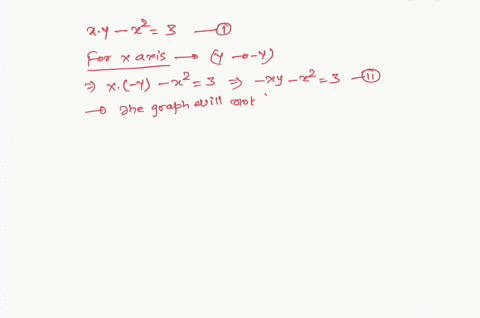 x.y – x² = 3 —①
For x axis → (y → -y)
⇒ x.(-y) – x² = 3 ⇒ -xy – x² = 3 —⑪
→ The graph will not